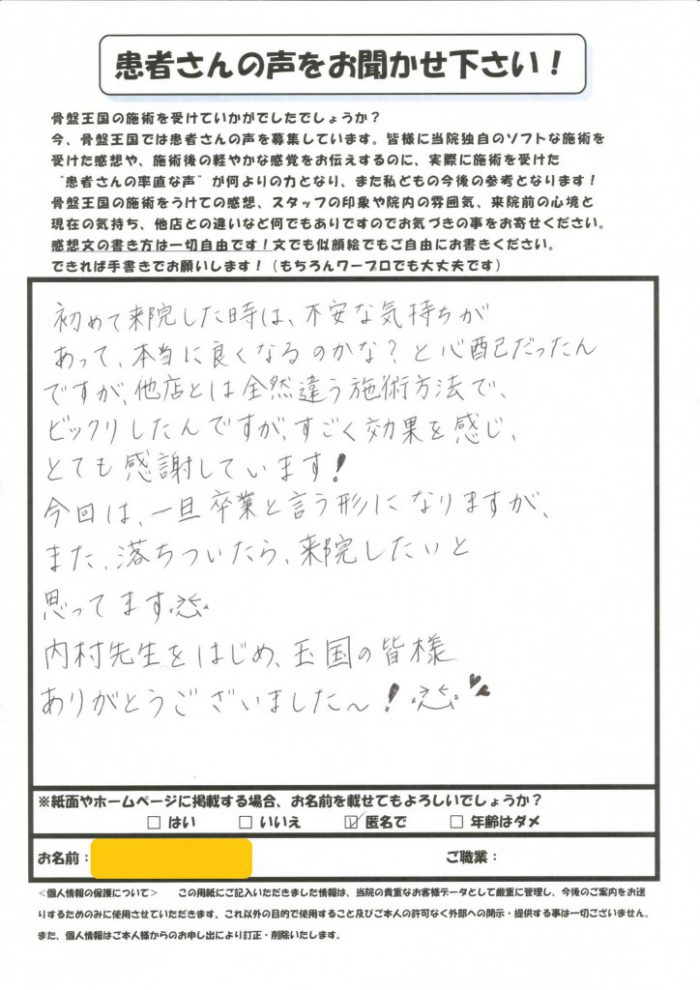 患者さんの声をお聞かせ下さい！
骨盤王国の施術を受けていかがでしたでしょうか？
今、骨盤王国では患者さんの声を募集しています。皆様に当院独自のソフトな施術を
受けた感想や、施術後の軽やかな感覚をお伝えするのに、実際に施術を受けた
"患者さんの率直な声"が何よりの力となり、また私どもの今後の参考となります！
骨盤王国の施術をうけての感想、スタッフの印象や院内の雰囲気、来院前の心境と
現在の気持ち、他店との違いなど何でもありですのでお気づきの事をお寄せください。
感想文の書き方は一切自由です！文でも似顔絵でもご自由にお書きください。
できれば手書きでお願いします！（もちろんワープロでも大丈夫です）
初めて来院した時は、不安な気持ちが
あって、本当に良くなるのかな？と心配だったん
ですが、他店とは全然違う施術方法で、
ビックリしたんですが、すごく効果を感じ、
とても感謝しています！
今回は、一旦卒業と言う形になりますが、
また、落ちついたら、来院したいと
思ってます
内村先生をはじめ、王国の皆様
ありがとうございました〜！
※紙面やホームページに掲載する場合、お名前を載せてもよろしいでしょうか？
□ はい □ いいえ ☑ 匿名で □ 年齢はダメ
お名前： ご職業：
＜個人情報の保護について＞ この用紙にご記入いただきました情報は、当院の貴重なお客様データとして厳重に管理し、今後のご案内をお送
りするためのみに使用させていただきます。これ以外の目的で使用すること及びご本人の許可なく外部への開示・提供する事は一切ございません。
また、個人情報はご本人様からのお申し出により訂正・削除いたします。